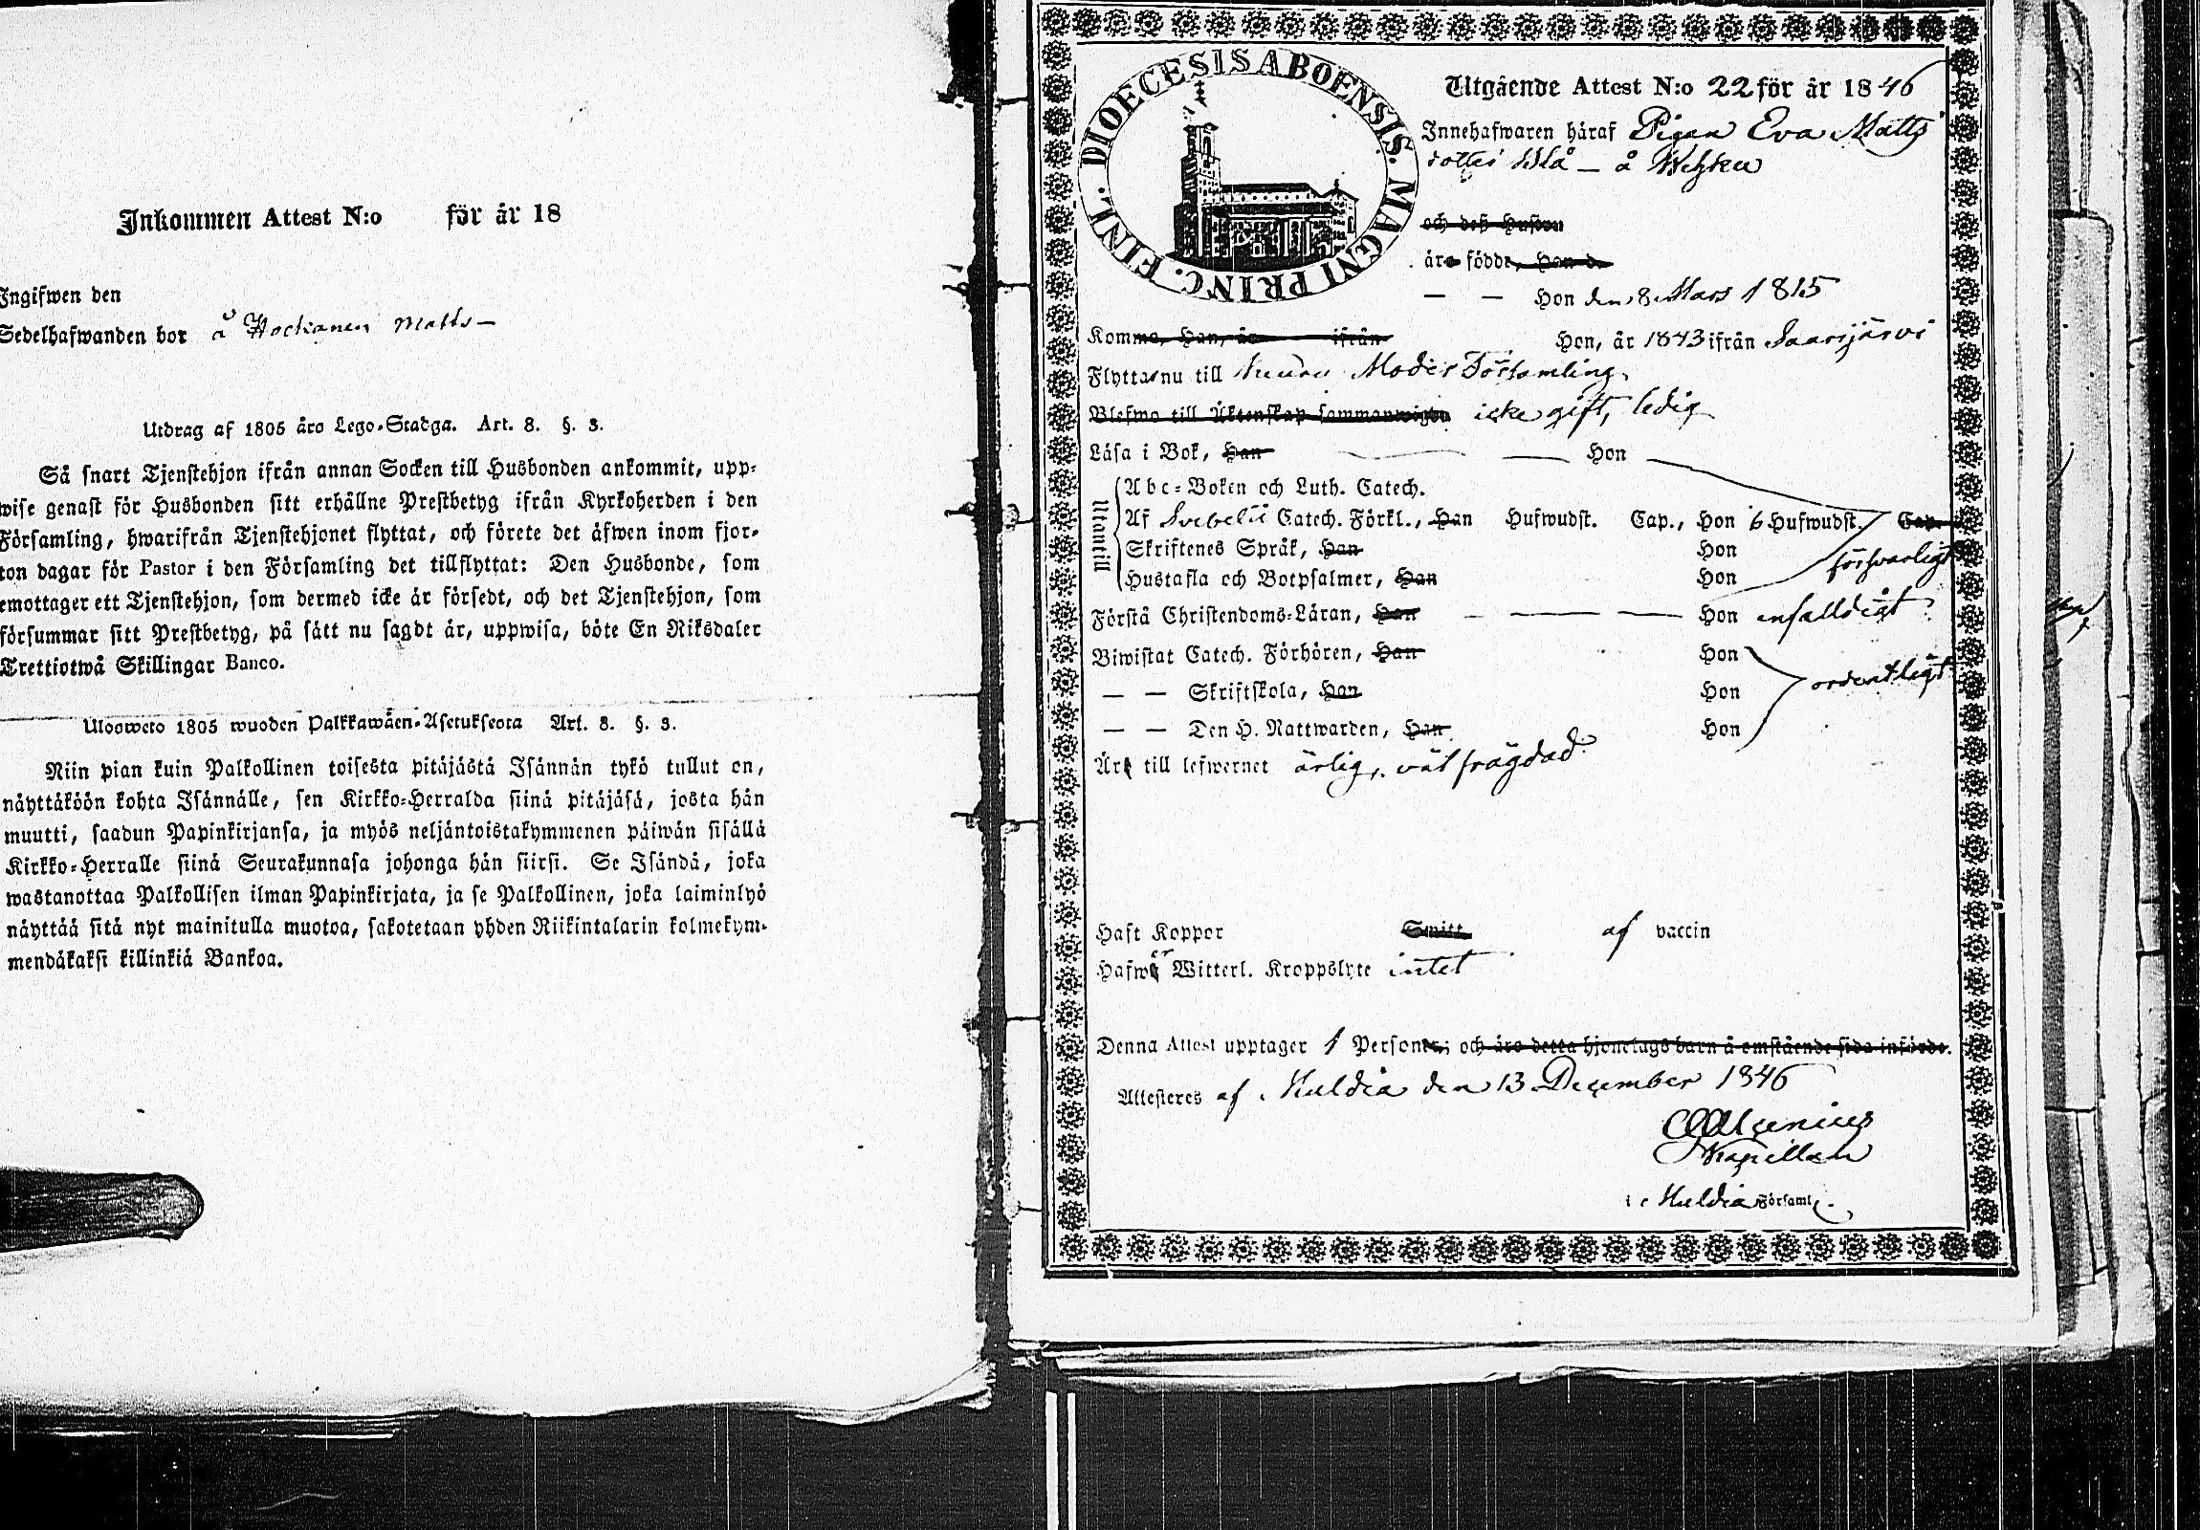 Inkommen Attest N:o för år 18
Ingifwen den
Sedelhafwanden bor å Hockanen Matts–
Utdrag af 1805 års Lego-Stadga. Art. 8. §. 3.
Så snart Tjenstehjon ifrån annan Socken till Husbonden ankommit, upp-
wise genast för Husbonden sitt erhållne Prestbetyg ifrån Kyrkoherden i den
Församling, hwarifrån Tjenstehjonet flyttat, och förete det äfwen inom fjor-
ton dagar för Pastor i den Församling det tillflyttat: Den Husbonde, som
emottager ett Tjenstehjon, som dermed icke är försedt, och det Tjenstehjon, som
försummar sitt Prestbetyg, på sätt nu sagdt är, uppwisa, böte En Riksdaler
Trettiotwå Skillingar Banco.
Uloosweto 1805 wuoden Palkkawäen-Asetuksesta Art. 8. §. 3.
Niin pian kuin Palkollinen toisesta pitäjästä Isännän tykö tullut on,
näyttäköön kohta Isännälle, sen Kirkko-Herralda siinä pitäjäsä, josta hän
muutti, saadun Papinkirjansa, ja myös neljäntoistakymmenen päiwän sisällä
Kirkko-Herralle siinä Seurakunnasa johonga hän siirsi. Se Isändä, joka
wastanottaa Palkollisen ilman Papinkirjata, ja se Palkollinen, joka laiminlyö
näyttää sitä nyt mainitulla muotoa, sakotetaan yhden Riikintalarin kolmekym-
mendäkaksi killinkiä Bankoa.
DIOECESIS ABOENSIS. MAGNI PRINC. FINL.
Utgående Attest N:o 22 för år 1846
Innehafwaren häraf Pigan Eva Matts
dotter Blå – å Wehka
och deß Hustru
äro födde, Han de
— — Hon den 8 Mars 1815
Komme, Han, är ifrån Hon, är 1843 ifrån Saarijärvi
Flytta nu till Keuru Moder Församling
Blefwo till Äktenskap sammanwigde icke gift, ledig
Läsa i Bok, Han — Hon
Utantill
Abc-Boken och Luth. Catech.
Af Svebelii Catech. Förkl., Han Hufwudst. Cap., Hon 6 Hufwudst. Cap.
Skriftenes Språk, Han Hon försvarligt
Hustafla och Botpsalmer, Han Hon
Förstå Christendoms-Läran, Han — — Hon enfalldigt
Biwistat Catech. Förhören, Han Hon
— — Skriftskola, Han Hon ordentligt
— — Den H. Nattwarden, Han Hon
Är till lefwernet ärlig, väl frägdad
Haft Koppor Smitt af vaccin
Hafwer Witterl. Kroppslyte intet
Denna Attest upptager 1 Personer; och äro detta hjonelags barn å omstående sida införde.
Attesteres af Muldia den 13 December 1846
Kapellan
i Muldia Församl.